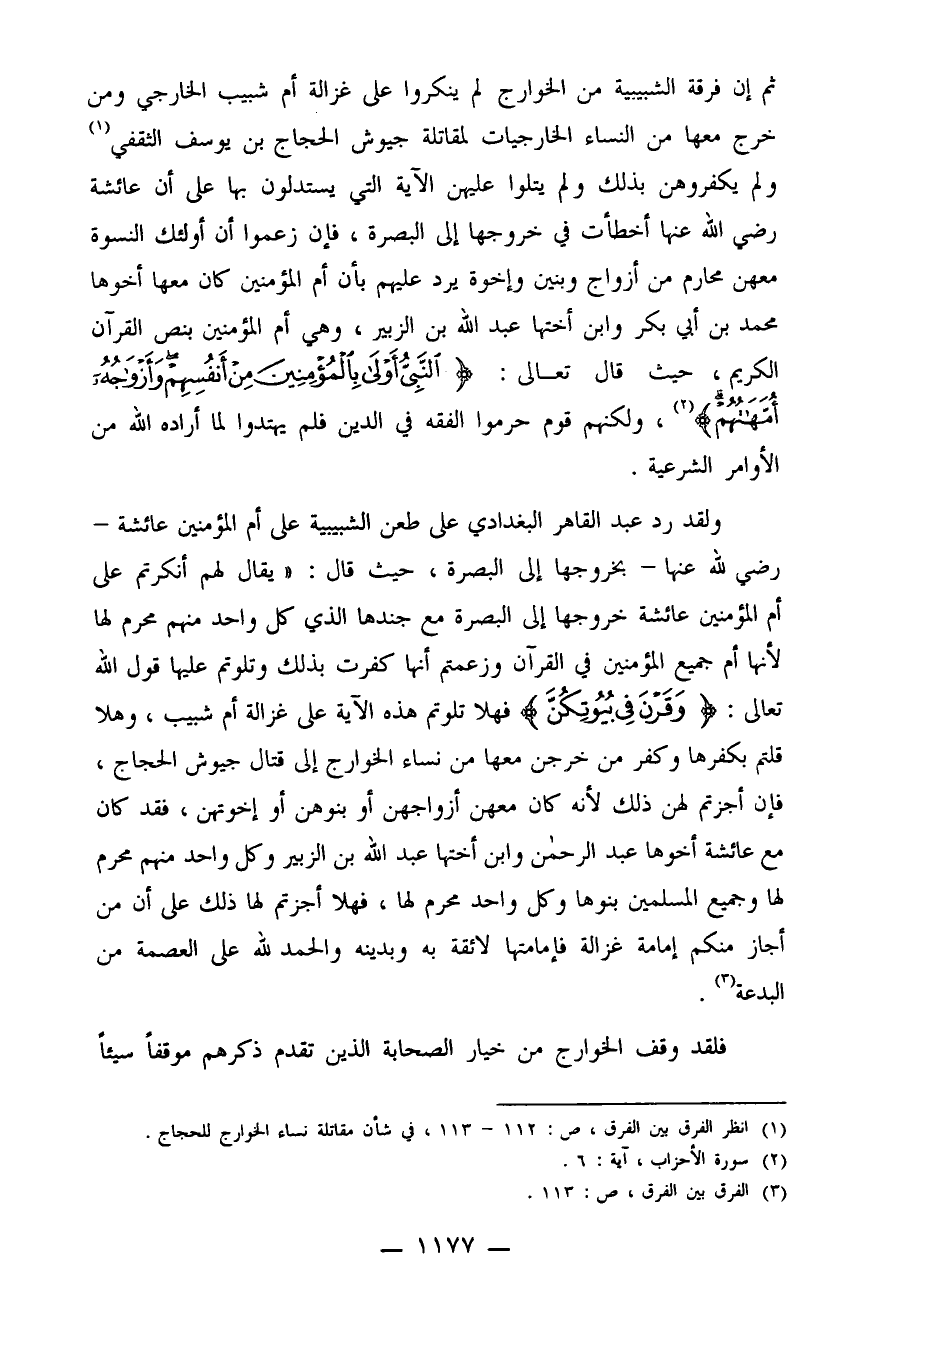 ثم إن فرقة الشبيبية من الخوارج لم ينكروا على غزالة أم شبيب الخارجي ومن
خرج معها من النساء الخارجيات لمقاتلة جيوش الحجاج بن يوسف الثقفي(١)
ولم يكفروهن بذلك ولم يتلوا عليهن الآية التي يستدلون بها على أن عائشة
رضي الله عنها أخطأت في خروجها إلى البصرة ، فإن زعموا أن أولئك النسوة
معهن محارم من أزواج وبنين وإخوة يرد عليهم بأن أم المؤمنين كان معها أخوها
محمد بن أبي بكر وابن أختها عبد الله بن الزبير ، وهي أم المؤمنين بنص القرآن
الكريم ، حيث قال تعـالى : ﴿ ٱلنَّبِىُّ أَوْلَىٰ بِٱلْمُؤْمِنِينَ مِنْ أَنفُسِهِمْ ۖ وَأَزْوَٰجُهُۥٓ
أُمَّهَٰتُهُمْ ۗ ﴾(٢) ، ولكنهم قوم حرموا الفقه في الدين فلم يهتدوا لما أراده الله من
الأوامر الشرعية .
ولقد رد عبد القاهر البغدادي على طعن الشبيبية على أم المؤمنين عائشة –
رضي لله عنها – بخروجها إلى البصرة ، حيث قال : « يقال لهم أنكرتم على
أم المؤمنين عائشة خروجها إلى البصرة مع جندها الذي كل واحد منهم محرم لها
لأنها أم جميع المؤمنين في القرآن وزعمتم أنها كفرت بذلك وتلوتم عليها قول الله
تعالى : ﴿ وَقَرْنَ فِى بُيُوتِكُنَّ ﴾ فهلا تلوتم هذه الآية على غزالة أم شبيب ، وهلا
قلتم بكفرها وكفر من خرجن معها من نساء الخوارج إلى قتال جيوش الحجاج ،
فإن أجزتم لهن ذلك لأنه كان معهن أزواجهن أو بنوهن أو إخوتهن ، فقد كان
مع عائشة أخوها عبد الرحمٰن وابن أختها عبد الله بن الزبير وكل واحد منهم محرم
لها وجميع المسلمين بنوها وكل واحد محرم لها ، فهلا أجزتم لها ذلك على أن من
أجاز منكم إمامة غزالة فإمامتها لائقة به وبدينه والحمد لله على العصمة من
البدعة(٣) .
فلقد وقف الخوارج من خيار الصحابة الذين تقدم ذكرهم موقفاً سيئاً
(١) انظر الفرق بين الفرق ، ص : ١١٢ – ١١٣ ، في شأن مقاتلة نساء الخوارج للحجاج .
(٢) سورة الأحزاب ، آية : ٦ .
(٣) الفرق بين الفرق ، ص : ١١٣ .
– ١١٧٧ –